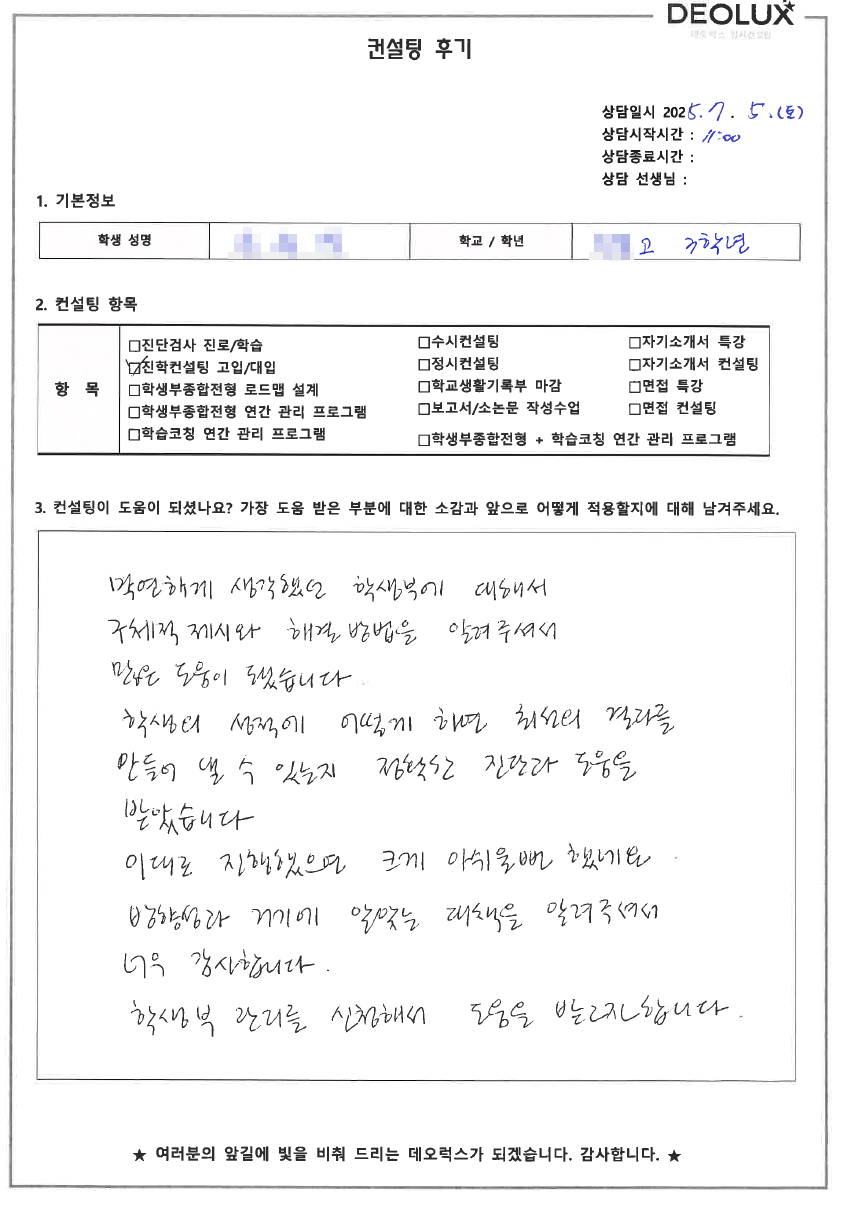 DEOLUX
데오럭스 입시컨설팅
컨설팅 후기
상담일시 2025. 7. 5. (토)
상담시작시간 : 11:00
상담종료시간 :
상담 선생님 :
1. 기본정보
학생 성명 학교 / 학년 고 3학년
2. 컨설팅 항목
항 목
□진단검사 진로/학습 □수시컨설팅 □자기소개서 특강
☑진학컨설팅 고입/대입 □정시컨설팅 □자기소개서 컨설팅
□학생부종합전형 로드맵 설계 □학교생활기록부 마감 □면접 특강
□학생부종합전형 연간 관리 프로그램 □보고서/소논문 작성수업 □면접 컨설팅
□학습코칭 연간 관리 프로그램 □학생부종합전형 + 학습코칭 연간 관리 프로그램
3. 컨설팅이 도움이 되셨나요? 가장 도움 받은 부분에 대한 소감과 앞으로 어떻게 적용할지에 대해 남겨주세요.
막연하게 생각했던 학생부에 대해서
구체적 제시와 해결 방법을 알려주셔서
많은 도움이 됐습니다.
학생의 성적에 어떻게 하면 최선의 결과를
만들어 낼 수 있는지 정확한 진단과 도움을
받았습니다
이대로 진행했으면 크게 아쉬울뻔 했네요.
방향성과 거기에 알맞는 대책을 알려주셔서
너무 감사합니다.
학생부 관리를 신청해서 도움을 받고자 합니다.
★ 여러분의 앞길에 빛을 비춰 드리는 데오럭스가 되겠습니다. 감사합니다. ★